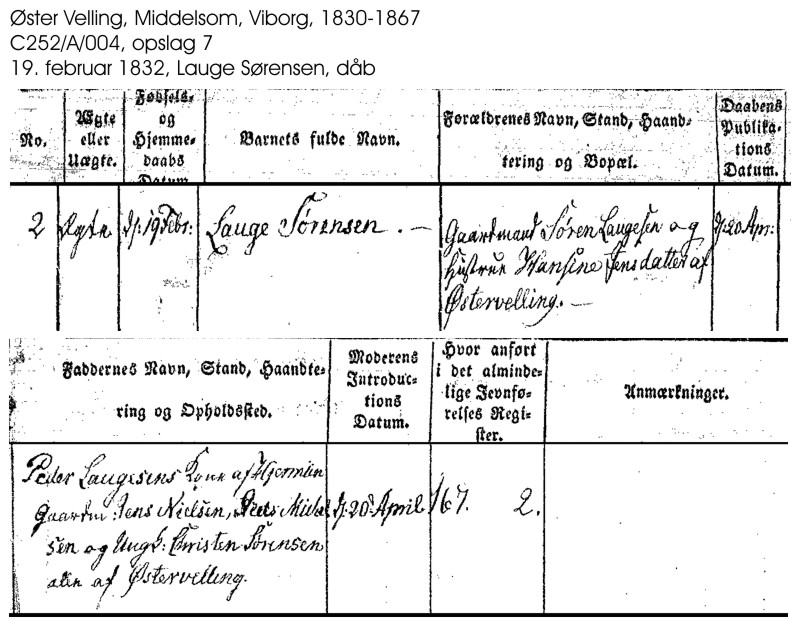 Øster Velling, Middelsom, Viborg, 1830-1867
C252/A/004, opslag 7
19. februar 1832, Lauge Sørensen, dåb
No.
Ægte
eller
Uægte.
Fødsels-
og
Hjemme-
daabs
Datum.
Barnets fulde Navn.
Forældrenes Navn, Stand, Haand-
tering og Bopæl.
Daabens
Publika-
tions
Datum.
2
Ægte
d: 19 Febr:
Lauge Sørensen. —
Gaardmand Søren Laugesen og
Hustrue Hansine Jensdatter af
Østervelling. —
d: 20 Apr:
Faddernes Navn, Stand, Haandte-
ring og Opholdssted.
Moderens
Introduc-
tions
Datum.
Hvor anført
i det alminde-
lige Jevnfø-
relses Regi-
ster.
Anmærkninger.
Peder Laugesens Kone af Hjermün
Gaardm: Jens Nielsen, Niels Mickel
sen og Ungk: Christen Sørensen
alle af Østervelling.
d: 20de April
167. 2.